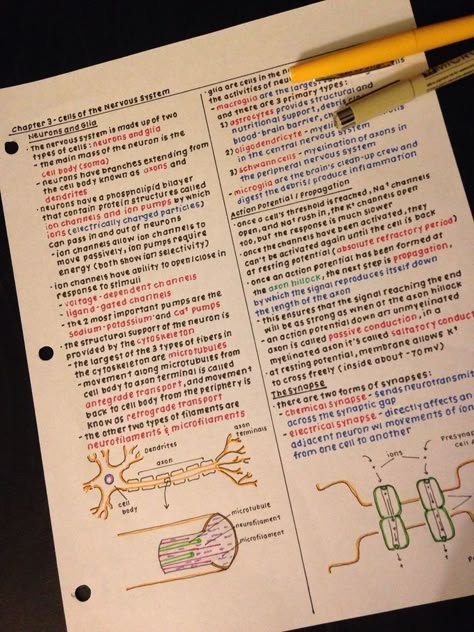 Chapter 3 - Cells of the Nervous System
Neurons and Glia
• the nervous system is made up of two
types of cells: neurons and glia
- the main mass of the neuron is the
cell body (soma)
- neurons have branches extending from
the cell body known as axons and
dendrites
• neurons have a phospholipid bilayer
that contain protein structures called
ion channels and ion pumps by which
ions (electrically charged particles)
can pass in and out of neurons
- ion channels allow ion channels to
move passively, ion pumps require
energy (both show ion selectivity)
• ion channels have ability to open/close in
response to stimuli
- voltage-dependent channels
- ligand-gated channels
• the 2 most important pumps are the
sodium-potassium and Ca+ pumps
• the structural support of the neuron is
provided by the cytoskeleton
- the largest of the 3 types of fibers in
the cytoskeleton are microtubules
- movement along microtubules from
cell body to axon terminal is called
antegrade transport, and movement
back to cell body from the periphery is
know as retrograde transport
- the other two types of filaments are
neurofilaments & microfilaments
dendrites
axon
axon terminals
cell body
microtubule
neurofilament
microfilament
• glia are cells in the
the activities of
- macroglia are the largest
and there are 3 primary types:
1) astrocytes provide structural and
nutritional support,
blood-brain barrier,
2) oligodendricyte -
in the central nervous system
3) schwann cells - myelination of axons in
the peripheral nervous system
- microglia are the brain's clean-up crew and
digest the debris; produce inflammation
Action Potential / Propagation
• once a cell's threshold is reached, Na+ channels
open, and Na+ rush in, the K+ channels open
too, but the response is much slower
• once the channels have been activated, they
can't be activated again until the cell is back
at resting potential (absolute refractory period)
• once an action potential has been formed at
the axon hillock, the next step is propagation,
by which the signal reproduces itself down
the length of the axon
- this ensures that the signal reaching the end
will be as strong as when at the axon hillock
- an action potential down an unmyelinated
axon is called passive conduction, in a
myelinated axon it's called saltatory
• at resting potential, membrane allows K+
to cross freely (inside about -70mV)
The Synapse
• there are two forms of synapses:
- chemical synapse - sends
across the synaptic gap
- electrical synapse - directly affects an
adjacent neuron w/ movements of
from one cell to another
ions